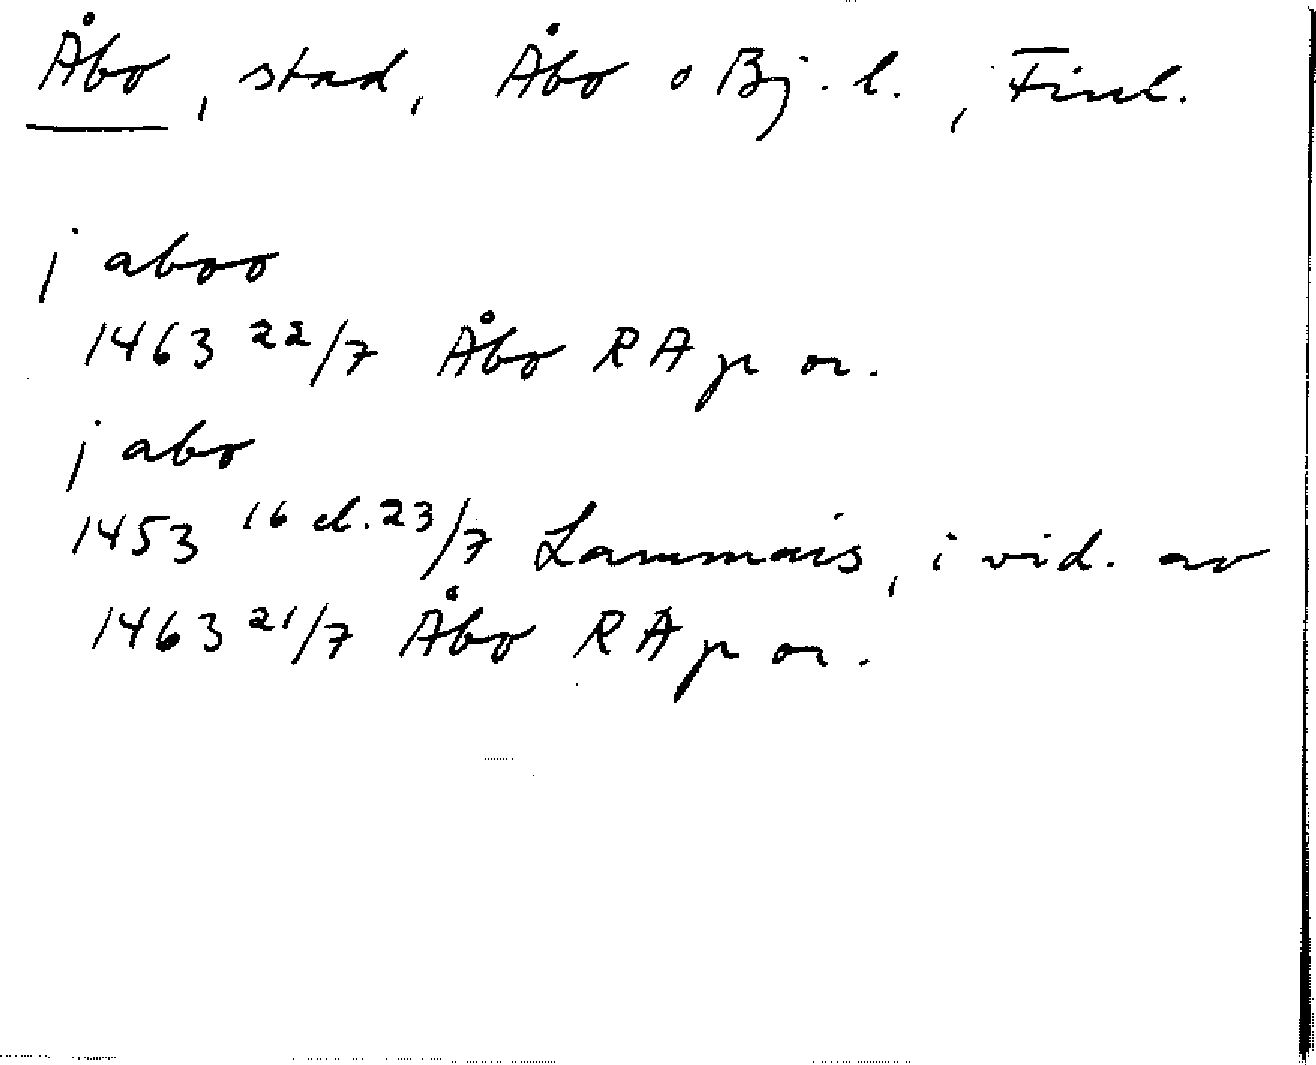 Åbo, stad, Åbo o Bj. l., Finl.
j aboo
1463 22/7 Åbo RA p or.
j abo
1453 16 el. 23/7 Lammais, i vid. av
1463 21/7 Åbo RA p or.